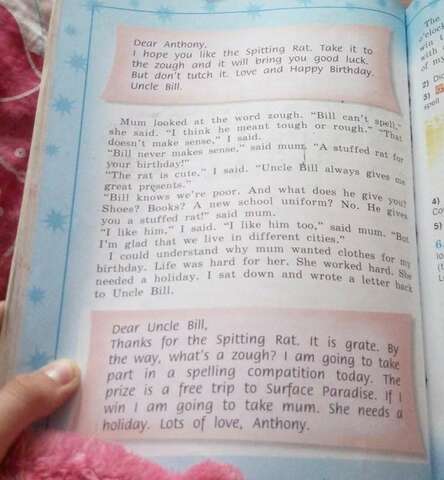 Dear Anthony,
I hope you like the Spitting Rat. Take it to
the zough and it will bring you good luck.
But don't tutch it. Love and Happy Birthday.
Uncle Bill.
Mum looked at the word zough. "Bill can't spell,"
she said. "I think he meant tough or rough." "That
doesn't make sense," I said.
"Bill never makes sense," said mum. "A stuffed rat for
your birthday!"
"The rat is cute," I said. "Uncle Bill always gives me
great presents."
"Bill knows we're poor. And what does he give you?
Shoes? Books? A new school uniform? No. He gives
you a stuffed rat!" said mum.
"I like him," I said. "I like him too," said mum. "But
I'm glad that we live in different cities."
I could understand why mum wanted clothes for my
birthday. Life was hard for her. She worked hard. She
needed a holiday. I sat down and wrote a letter back
to Uncle Bill.
Dear Uncle Bill,
Thanks for the Spitting Rat. It is grate. By
the way, what's a zough? I am going to take
part in a spelling compatition today. The
prize is a free trip to Surface Paradise. If I
win I am going to take mum. She needs a
holiday. Lots of love, Anthony.
o'clock
win t
with
of my
2)
3)
spell
4)
5)
6.